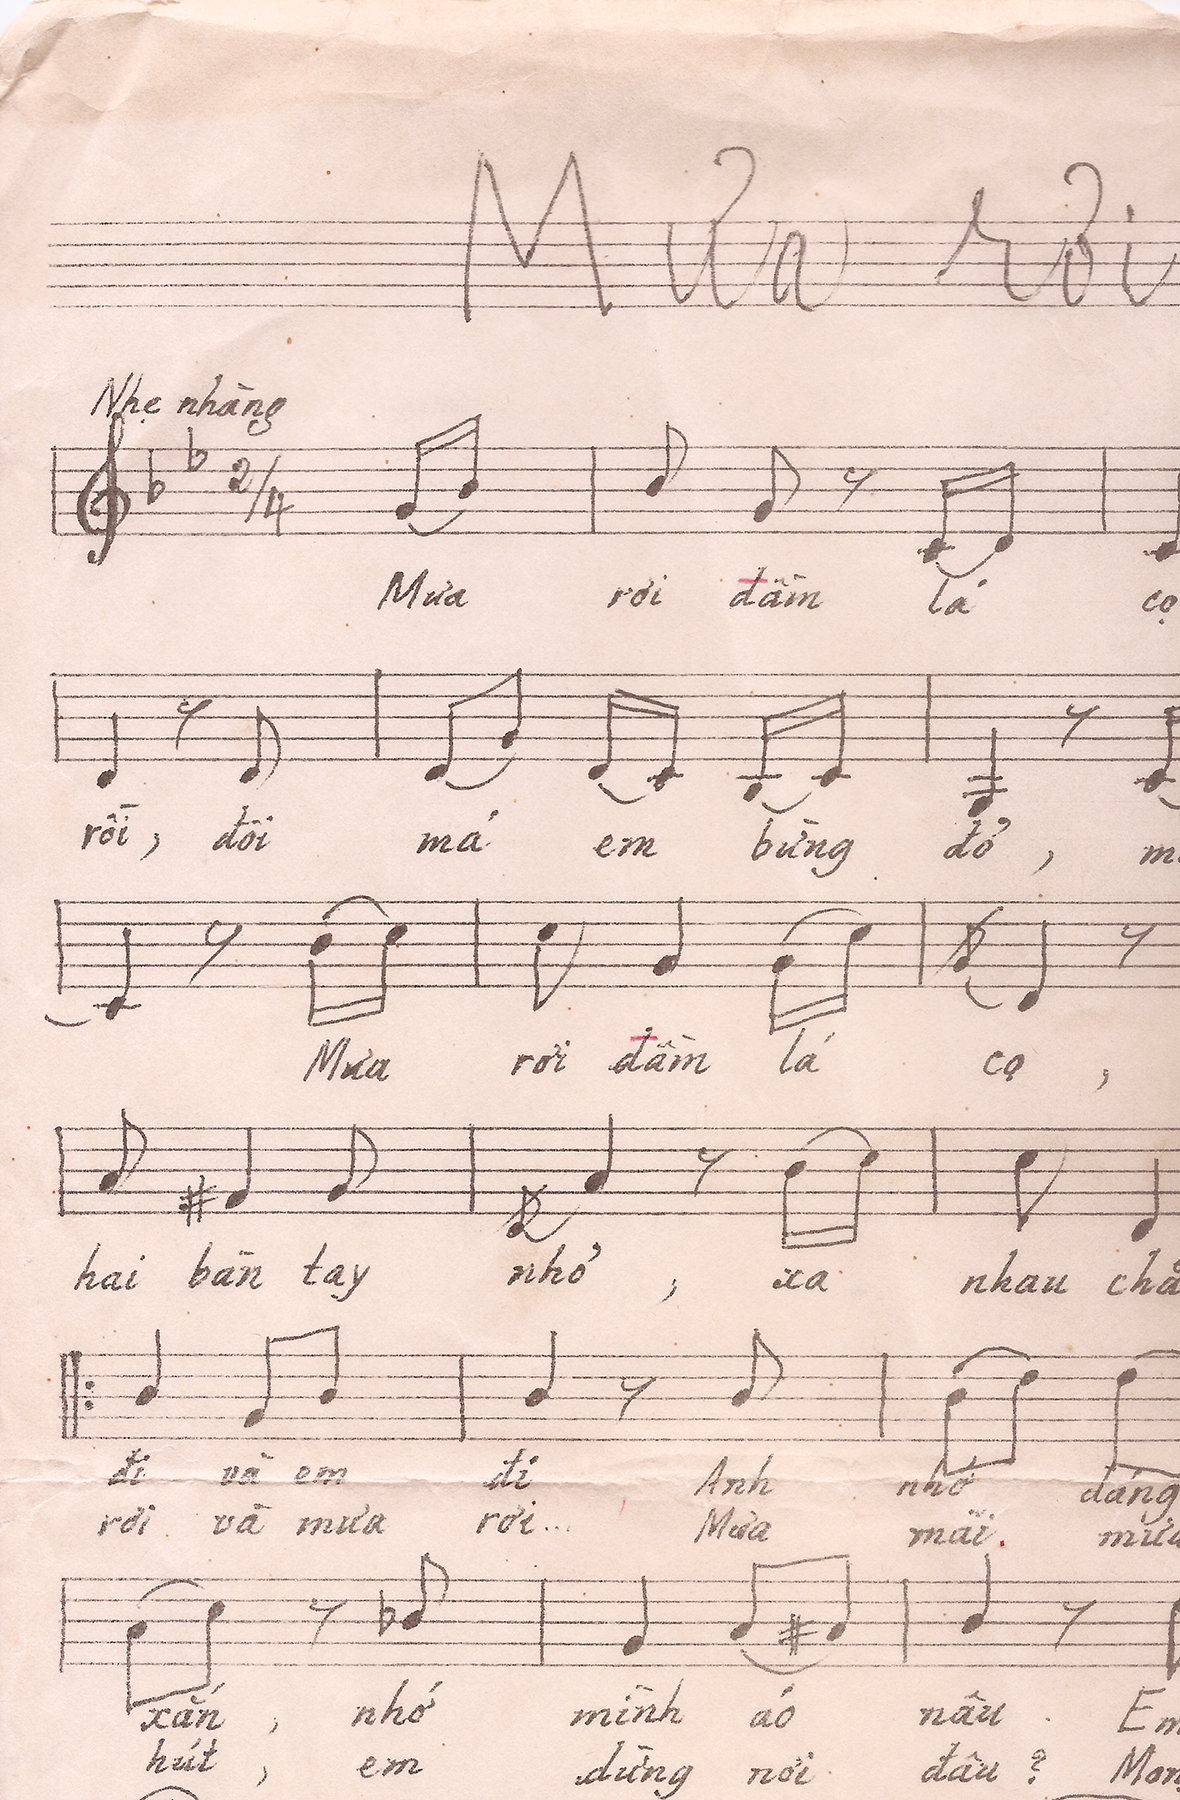 Mưa rơi
Nhẹ nhàng
2/4
Mưa rơi đầm lá cọ
rồi, đôi má em bừng đỏ,
Mưa rơi đầm lá cọ,
hai bàn tay nhỏ, xa nhau
đi và em đi Anh nhớ dáng
rơi và mưa rơi... Mưa mãi.
xắn, nhớ mình áo nâu. Em
hút, em dừng nơi đâu?